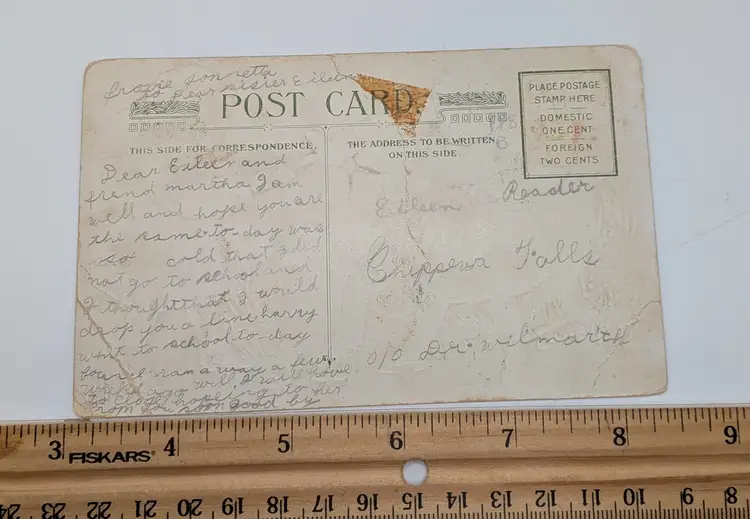 frome jon retta
to Dear sister Eileen
POST CARD.
PLACE POSTAGE
STAMP HERE
DOMESTIC
ONE CENT
FOREIGN
TWO CENTS
THIS SIDE FOR CORRESPONDENCE.
THE ADDRESS TO BE WRITTEN
ON THIS SIDE.
Dear Eileen and
frend martha I am
well and hope you are
the same to-day was
so cold that I did
not go to school and
I thought that I would
drop you a line harry
went to school to-day
ran a way a few
well I will have
to close hopeing to her
from you soon good by
Eileen Reader
Chippewa Falls
c/o Dr. Wilmarth
3 4 5 6 7 8 9
FISKARS
24 23 22 21 20 19 18 17 16 15 14 13 12 11 10 9 8